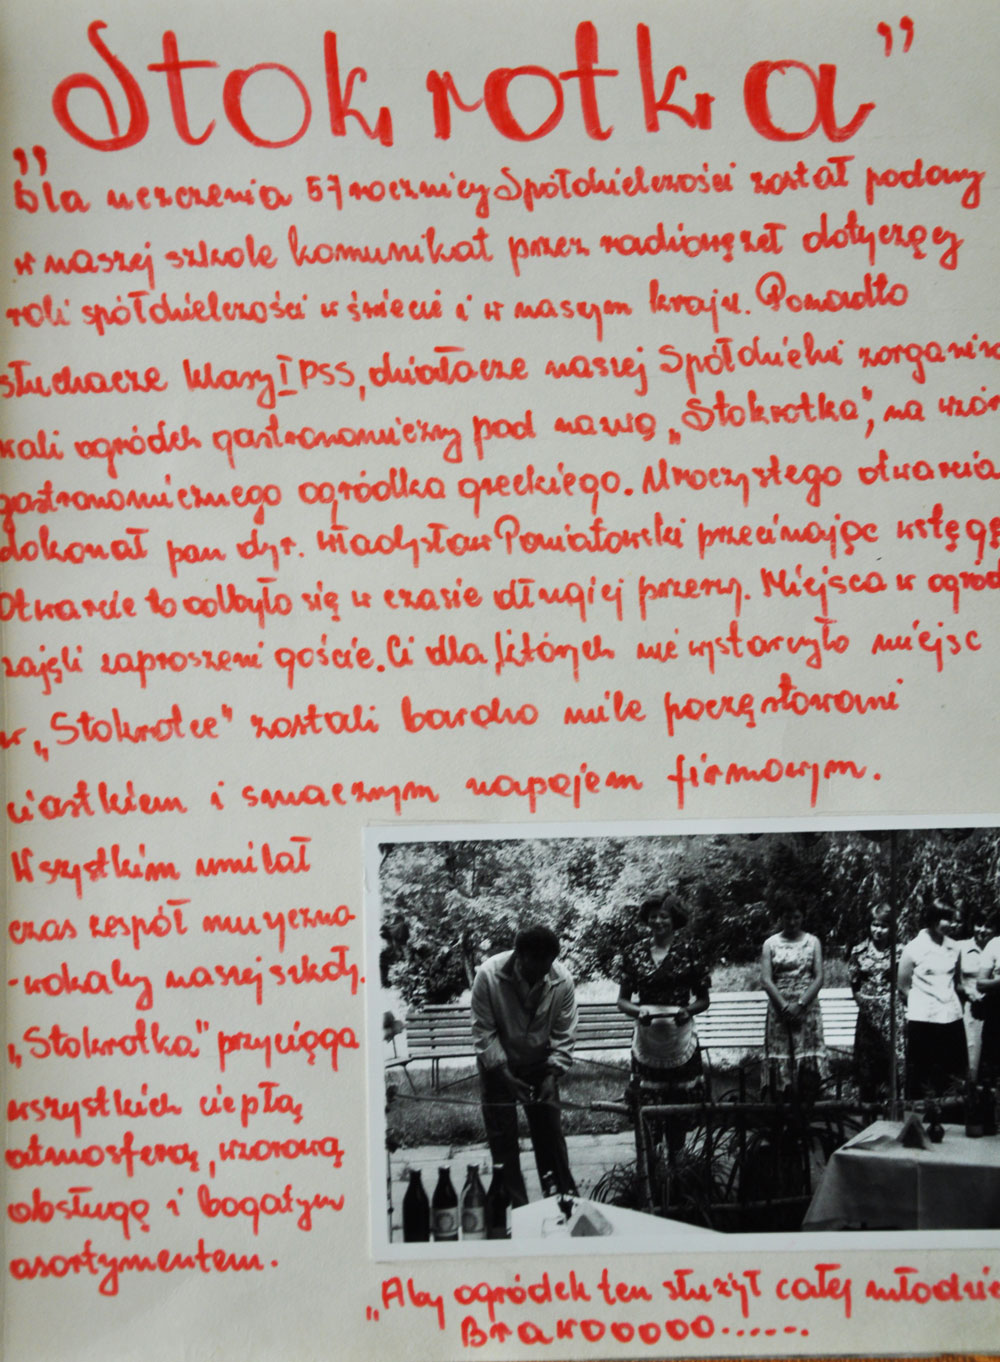 „Stokrotka”
Dla uczczenia 57 rocznicy Spółdzielczości został podany
w naszej szkole komunikat przez radiowęzeł dotyczący
roli spółdzielczości w świecie i w naszym kraju. Ponadto
słuchacze klasy I PSS, działacze naszej Spółdzielni zorganizo
wali ogródek gastronomiczny pod nazwą „Stokrotka”, na wzór
gastronomicznego ogródka greckiego. Uroczystego otwarcia
dokonał pan dyr. Władysław Poniatowski przecinając wstęgę
Otwarcie to odbyło się w czasie długiej przerwy. Miejsca w ogród
zajęli zaproszeni goście. Ci dla których nie wystarczyło miejsc
w „Stokrotce” zostali bardzo mile poczęstowani
ciastkiem i smacznym napojem firmowym.
Wszystkim umilał
czas zespół muzyczno-
-wokalny naszej szkoły.
„Stokrotka” przyciąga
wszystkich ciepłą
atmosferą, wzorową
obsługą i bogatym
asortymentem.
„Aby ogródek ten służył całej młodzie
Brawooooo......